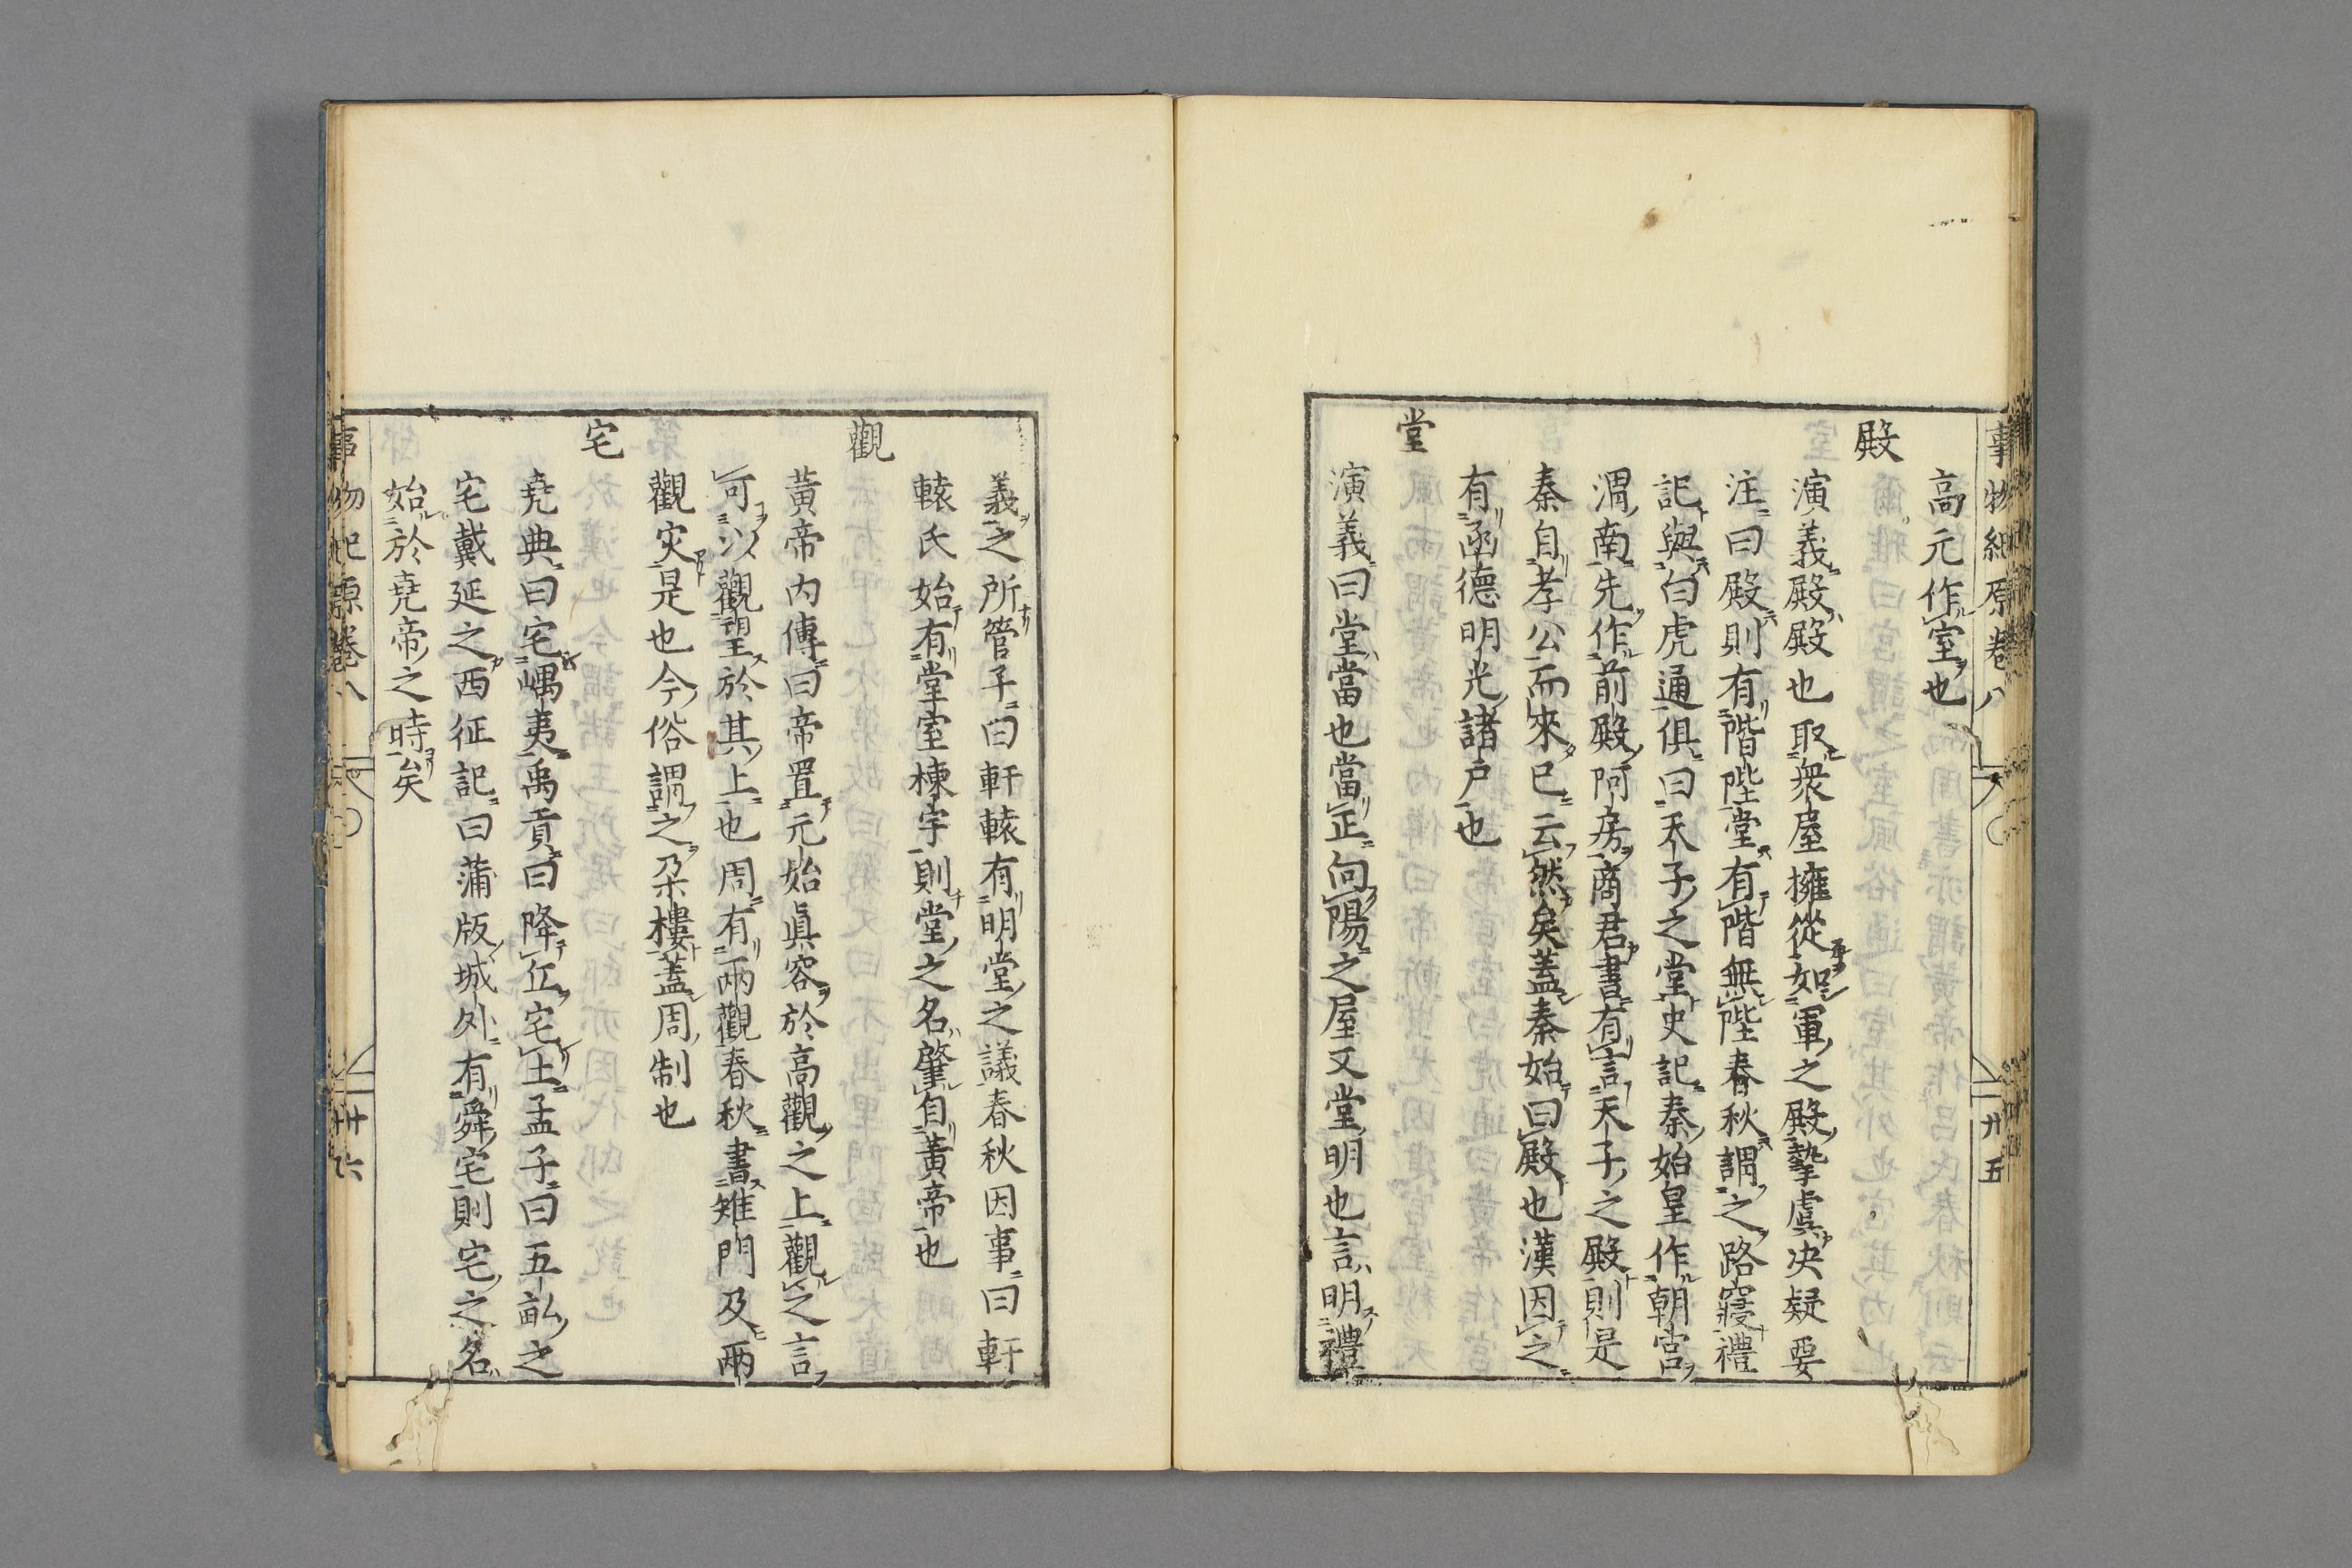 事物紀原卷八
卅五
高元作室也
殿
演義殿殿也取衆屋擁從如軍之殿摯虞决疑要
注曰殿則有階陛堂有階無陛春秋謂之路寢禮
記與白虎通俱曰天子之堂史記秦始皇作朝宮
渭南先作前殿阿房商君書有言天子之殿則是
秦自孝公而來巳云然矣蓋秦始曰殿也漢因之
有函德明光諸戸也
堂
演義曰堂當也當正向陽之屋又堂明也言明禮
義之所管子曰軒轅有明堂之議春秋因事曰軒
轅氏始有堂室棟宇則堂之名肇自黃帝也
觀
黃帝内傳曰帝置元始眞容於高觀之上觀之言
可以觀望於其上也周有兩觀春秋書雉門及兩
觀灾是也今俗謂之朶樓蓋周制也
宅
堯典曰宅嵎夷禹貢曰降丘宅土孟子曰五畝之
宅戴延之西征記曰蒲版城外有舜宅則宅之名
始於堯帝之時矣
事物紀原卷八
卅六